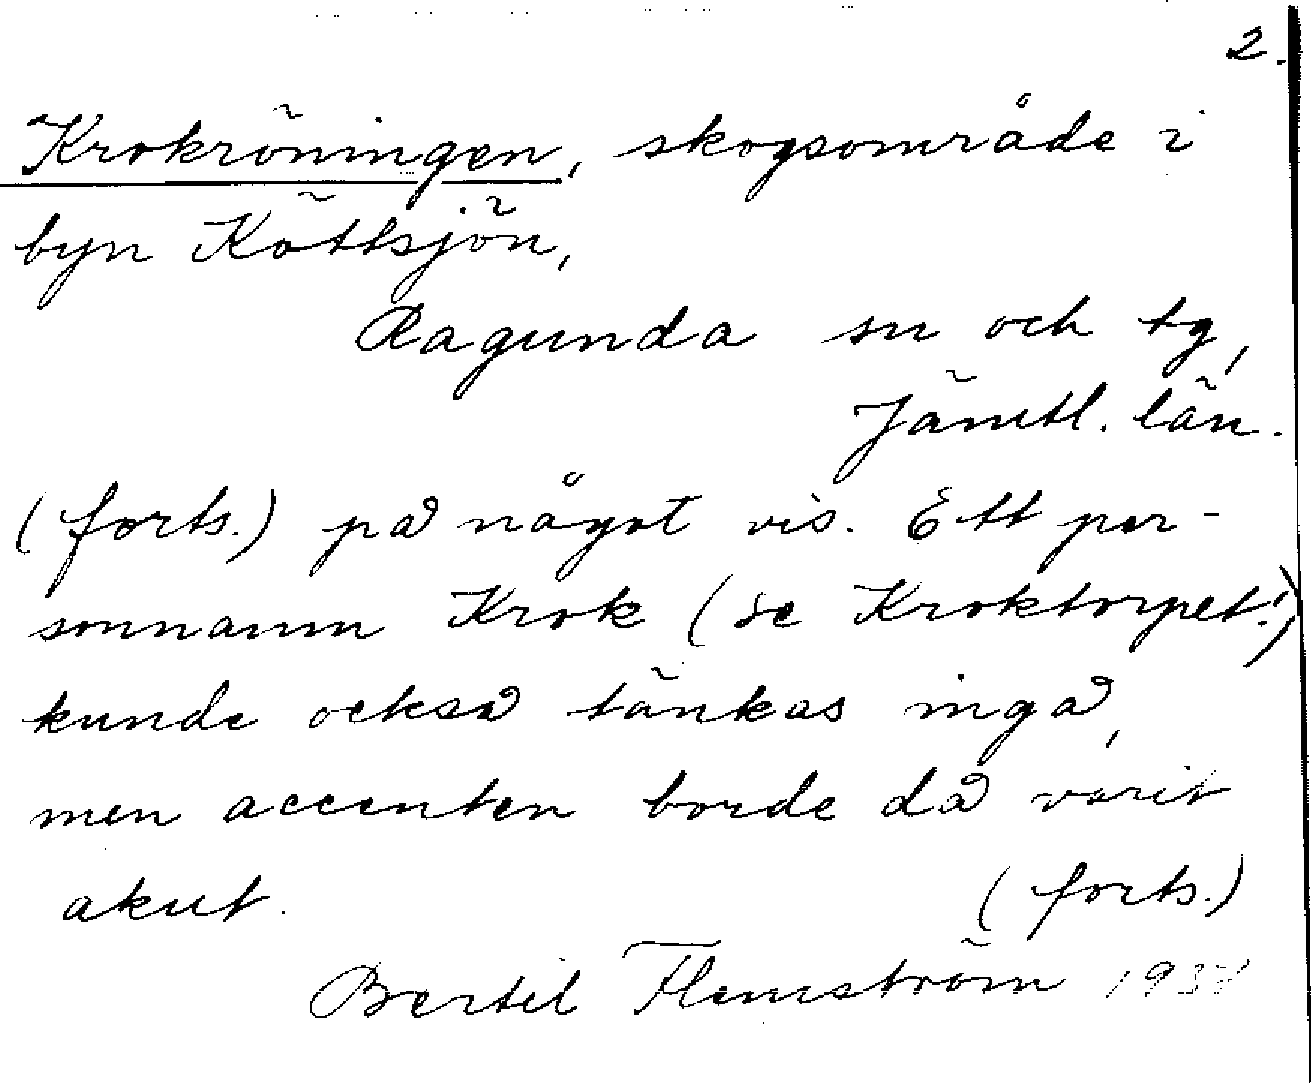 2.
Krokröningen, skogsområde i
byn Köttsjön,
Ragunda sn och tg,
Jämtl. län.
(forts.) på något vis. Ett per-
sonnamn Krok (se Kroktorpet!)
kunde också tänkas ingå,
men accenten borde då varit
akut.
(forts.)
Bertil Flemström